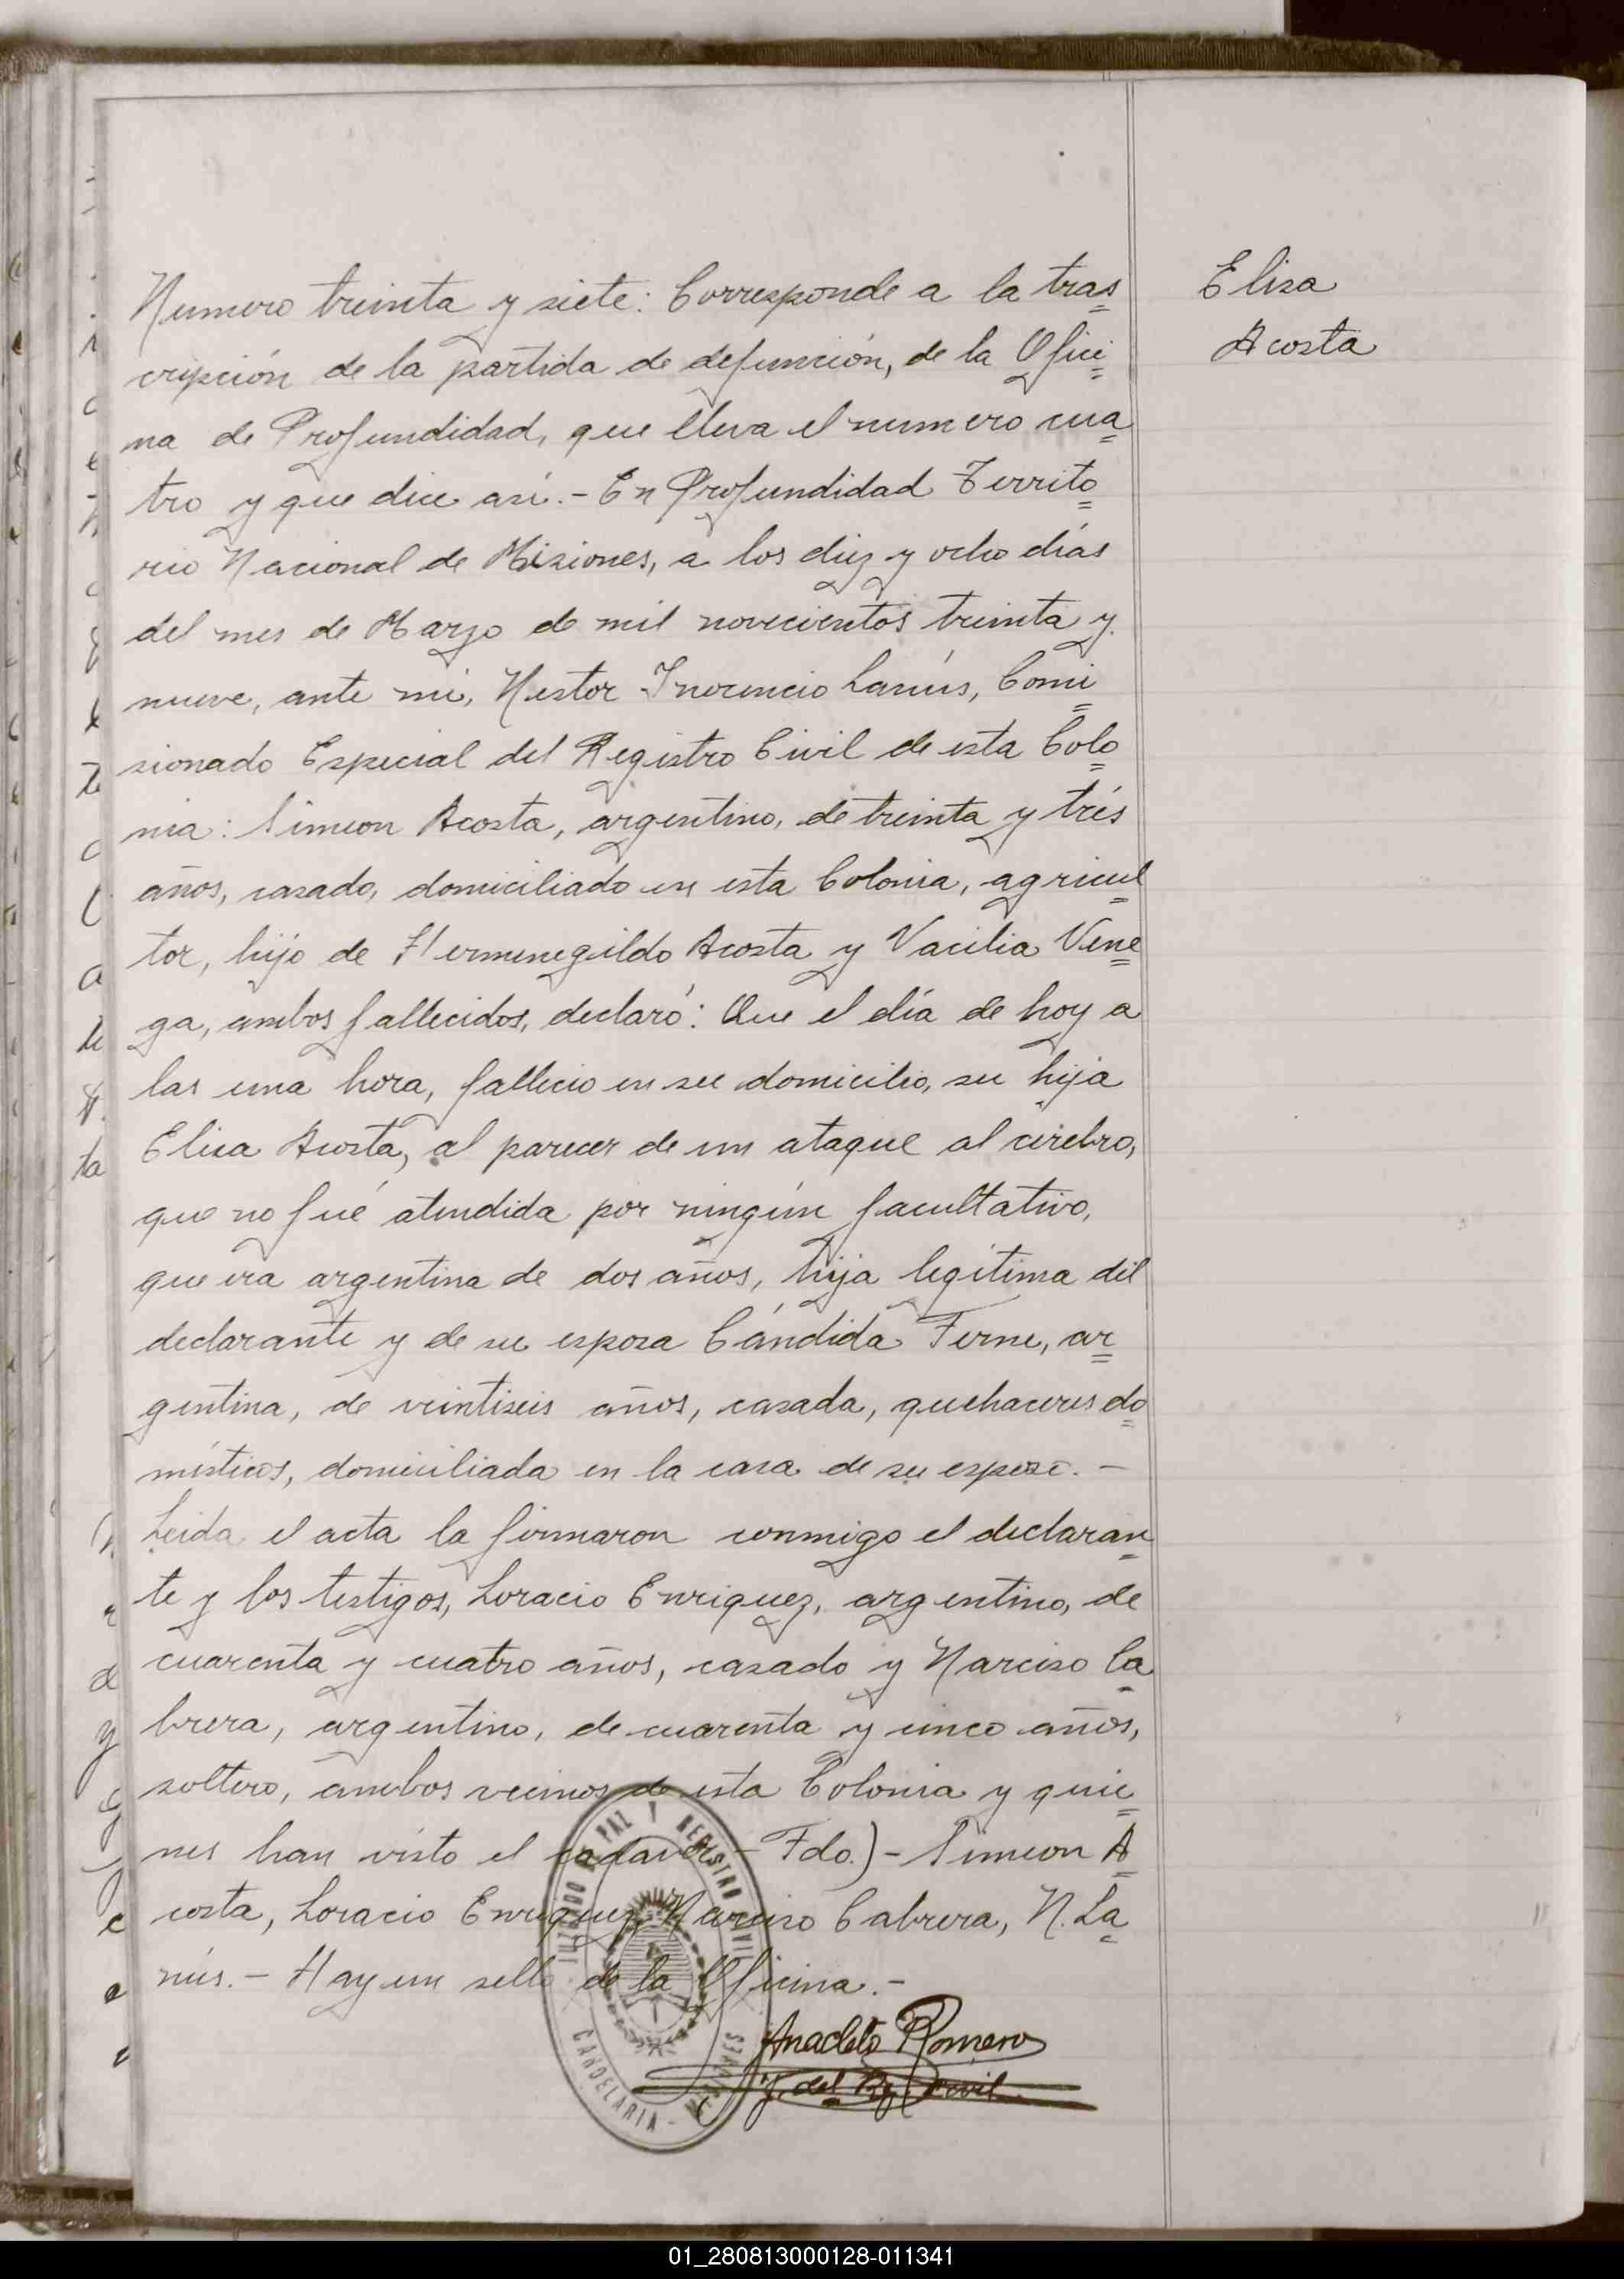 Elisa
Acosta
Numero treinta y siete: Corresponde a la tras
cripción de la partida de defunción, de la Ofici
na de Profundidad, que lleva el numero cua
tro y que dice así.- En Profundidad Territo
rio Nacional de Misiones, a los diez y ocho días
del mes de Marzo de mil novecientos treinta y
nueve, ante mí, Nestor Inocencio Lanús, Comi
sionado Especial del Registro Civil de esta Colo
nia: Simeon Acosta, argentino, de treinta y trés
años, casado, domiciliado en esta Colonia, agricul
tor, hijo de Hermenegildo Acosta y Vacilia Vene
ga, ambos fallecidos, declaró: Que el día de hoy a
las una hora, fallecio en su domicilio, su hija
Elisa Acosta, al parecer de un ataque al cerebro,
que no fué atendida por ningún facultativo,
que era argentina de dos años, hija legítima del
declarante y de su esposa Cándida Ferne, ar
gentina, de veintiseis años, casada, quehaceres do
mésticos, domiciliada en la casa de su esposo.-
Leida el acta la firmaron conmigo el declaran
te y los testigos, Loracio Enriquez, argentino, de
cuarenta y cuatro años, casado y Narciso Ca
brera, argentino, de cuarenta y cinco años,
soltero, ambos vecinos de esta Colonia y quie
nes han visto el cadaver.- Fdo.)- Simeon A
costa, Loracio Enriquez, Narciso Cabrera, N. La
nús.- Hay un sello de la Oficina.-
Anacleto Romero
J. del Rg. Civil
JUZGADO DE PAZ Y REGISTRO CIVIL
CANDELARIA - MISIONES
01_280813000128-011341